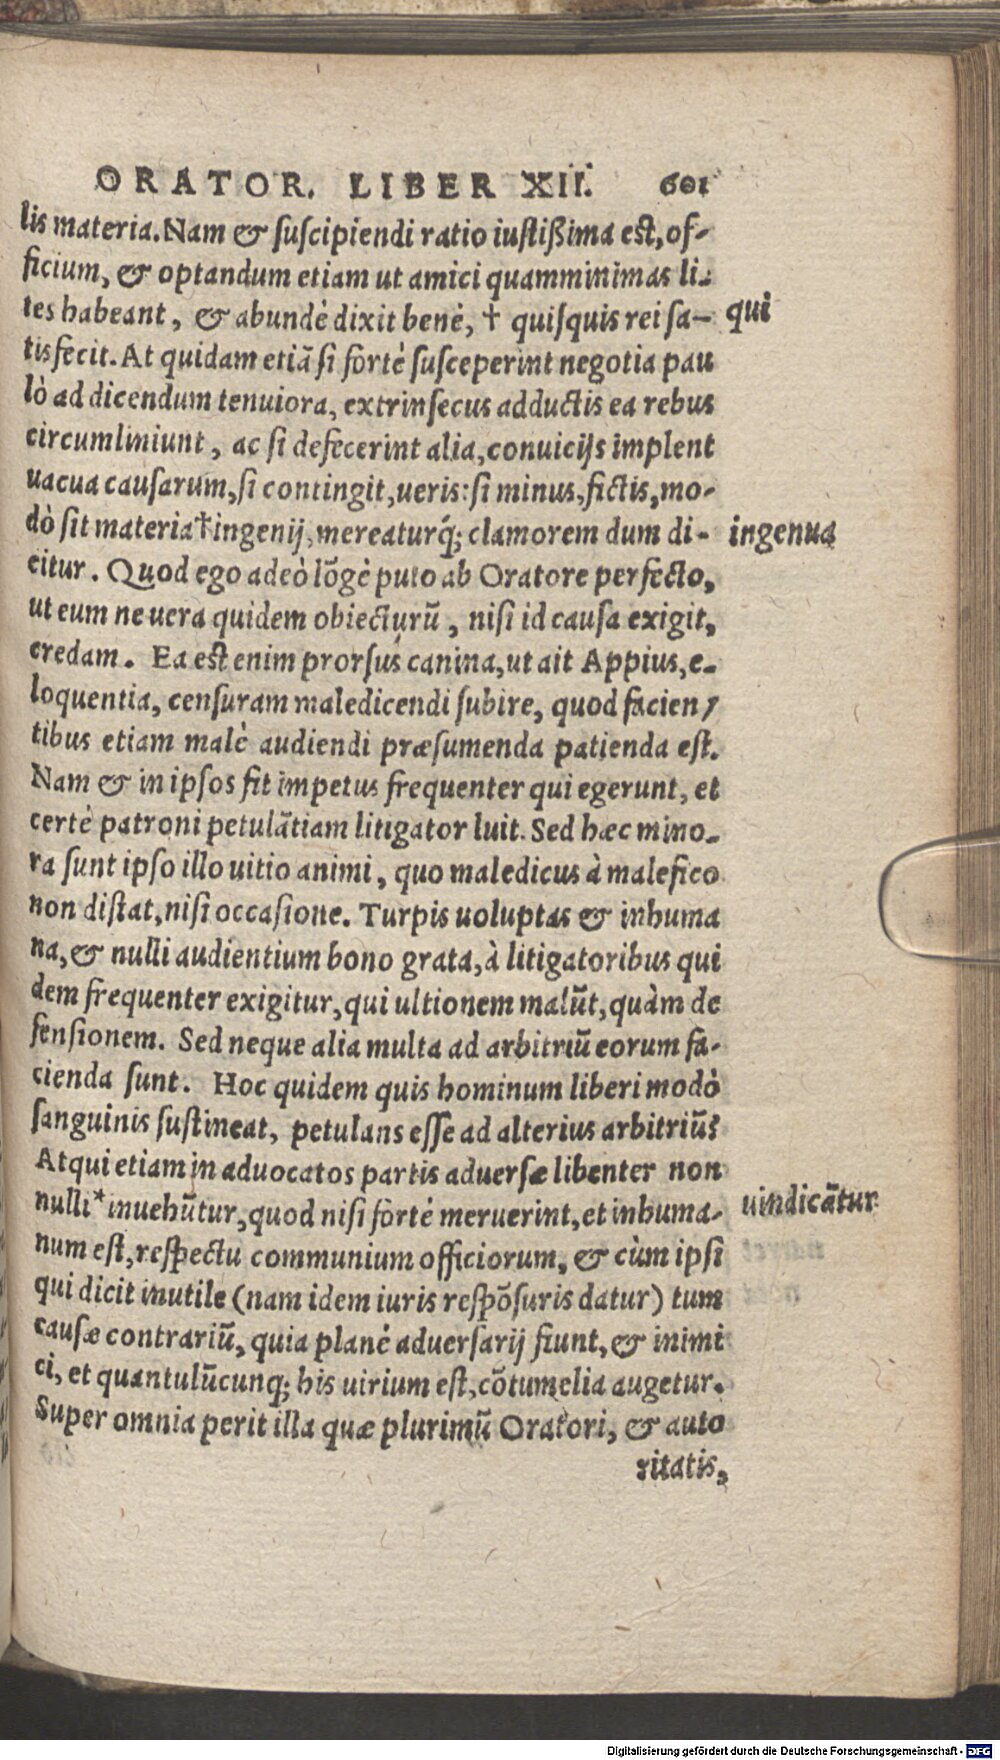 ORATOR. LIBER XII. 601
lis materia. Nam & suscipiendi ratio iustißima est, of-
ficium, & optandum etiam ut amici quamminimas li-
tes habeant, & abundè dixit benè, † quisquis rei sa-
qui
tisfecit. At quidam etiã si fortè susceperint negotia pau
lò ad dicendum tenuiora, extrinsecus adductis ea rebus
circumliniunt, ac si defecerint alia, conuicijs implent
uacua causarum, si contingit, ueris: si minus, fictis, mo-
dò sit materia † ingenij, mereaturq́; clamorem dum di-
ingenua
citur. Quod ego adeò lõgè puto ab Oratore perfecto,
ut eum ne uera quidem obiecturũ, nisi id causa exigit,
credam. Ea est enim prorsus canina, ut ait Appius, e-
loquentia, censuram maledicendi subire, quod facien/
tibus etiam malè audiendi præsumenda patienda est.
Nam & in ipsos fit impetus frequenter qui egerunt, et
certè patroni petulãtiam litigator luit. Sed hæc mino-
ra sunt ipso illo uitio animi, quo maledicus à malefico
non distat, nisi occasione. Turpis uoluptas & inhuma
na, & nulli audientium bono grata, à litigatoribus qui
dem frequenter exigitur, qui ultionem malũt, quàm de
fensionem. Sed neque alia multa ad arbitriũ eorum fa-
cienda sunt. Hoc quidem quis hominum liberi modò
sanguinis sustineat, petulans esse ad alterius arbitriũ?
Atqui etiam in aduocatos partis aduersæ libenter non
nulli * inuehũtur, quod nisi fortè meruerint, et inhuma-
uindicãtur
num est, respectu communium officiorum, & cùm ipsi
qui dicit inutile (nam idem iuris respõsuris datur) tum
causæ contrariũ, quia planè aduersarij fiunt, & inimi
ci, et quantulũcunq; his uirium est, cõtumelia augetur.
Super omnia perit illa quæ plurimũ Oratori, & auto
ritatis,
Digitalisierung gefördert durch die Deutsche Forschungsgemeinschaft - DFG